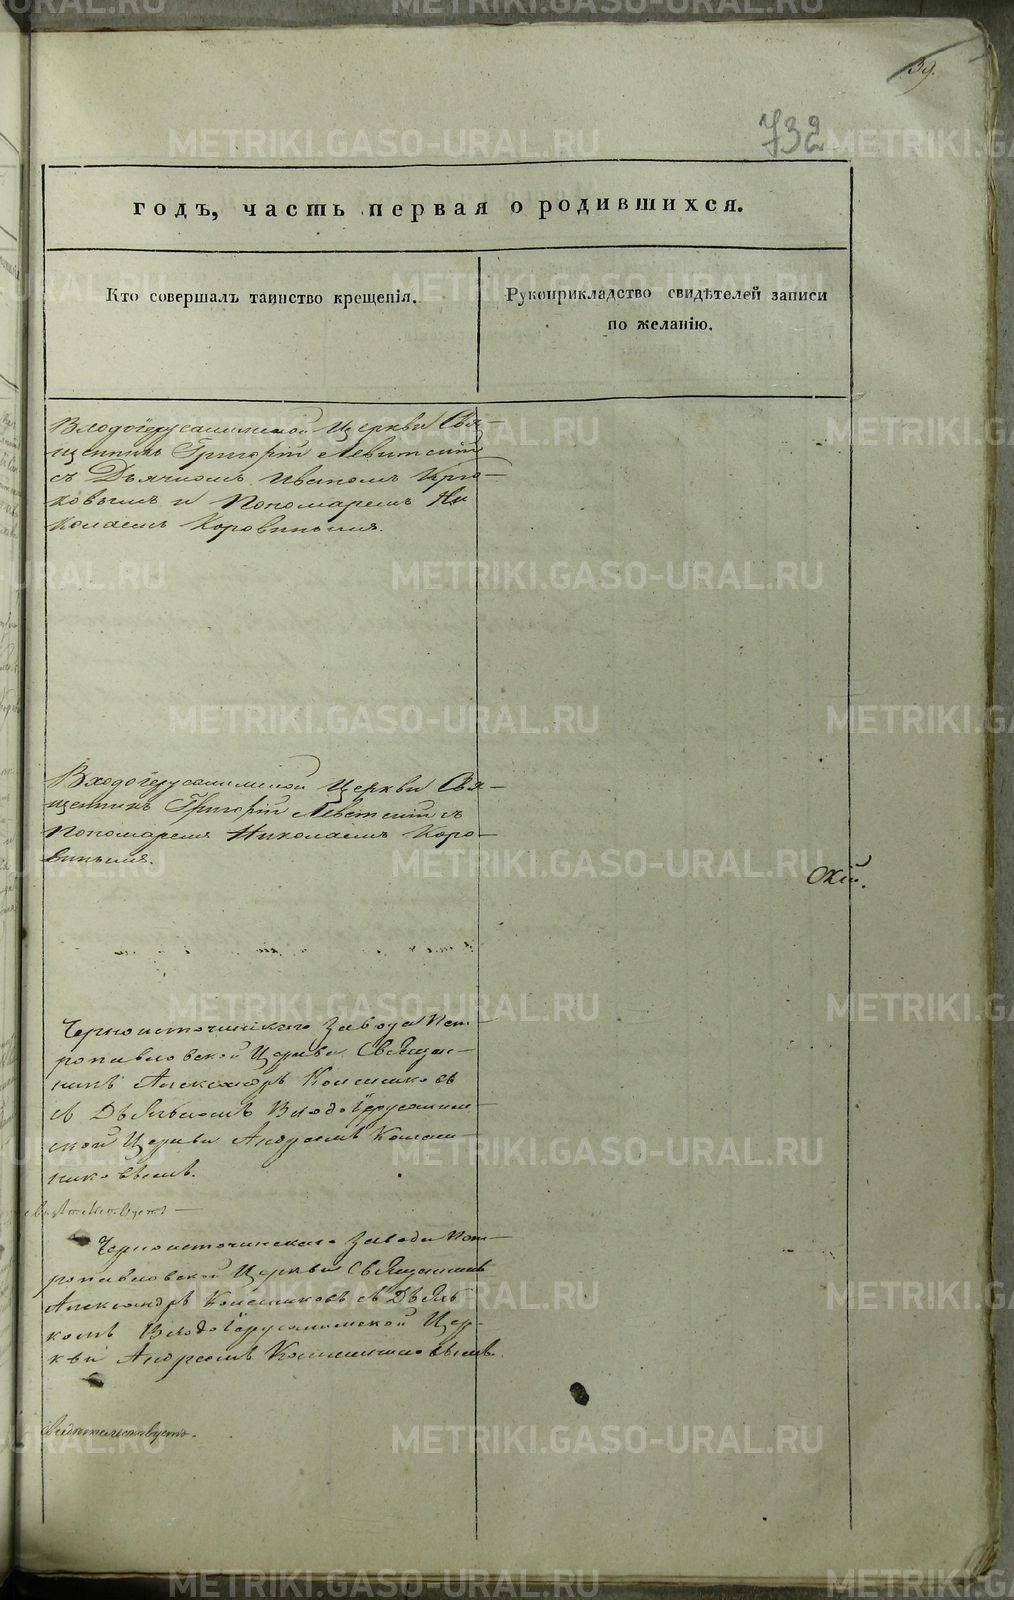 39.
732
годъ, часть первая о родившихся.
Кто совершалъ таинство крещенія.
Рукоприкладство свидѣтелей записи
по желанію.
Входоіерусалимской Церкви Свя-
щенникъ Григорій Левитскій
съ Дьячкомъ Иваномъ Крю-
ковымъ и Пономаремъ Ни
колаемъ Коровинымъ.
Входоіерусалимской Церкви Свя-
щенникъ Григорій Левитскій съ
Пономаремъ Николаемъ Коро-
винымъ.
Черноисточинскаго Завода Пет-
ропавловской Церкви Священ-
никъ Александръ
съ Дьячкомъ Входоіерусалим-
ской Церкви Андреемъ
Черноисточинскаго Завода Пет-
ропавловской Церкви Священникъ
Александръ съ Дьяч
комъ Входоіерусалимской Цер-
кви Андреемъ
Свидѣтельствуетъ.
METRIKI.GASO-URAL.RU